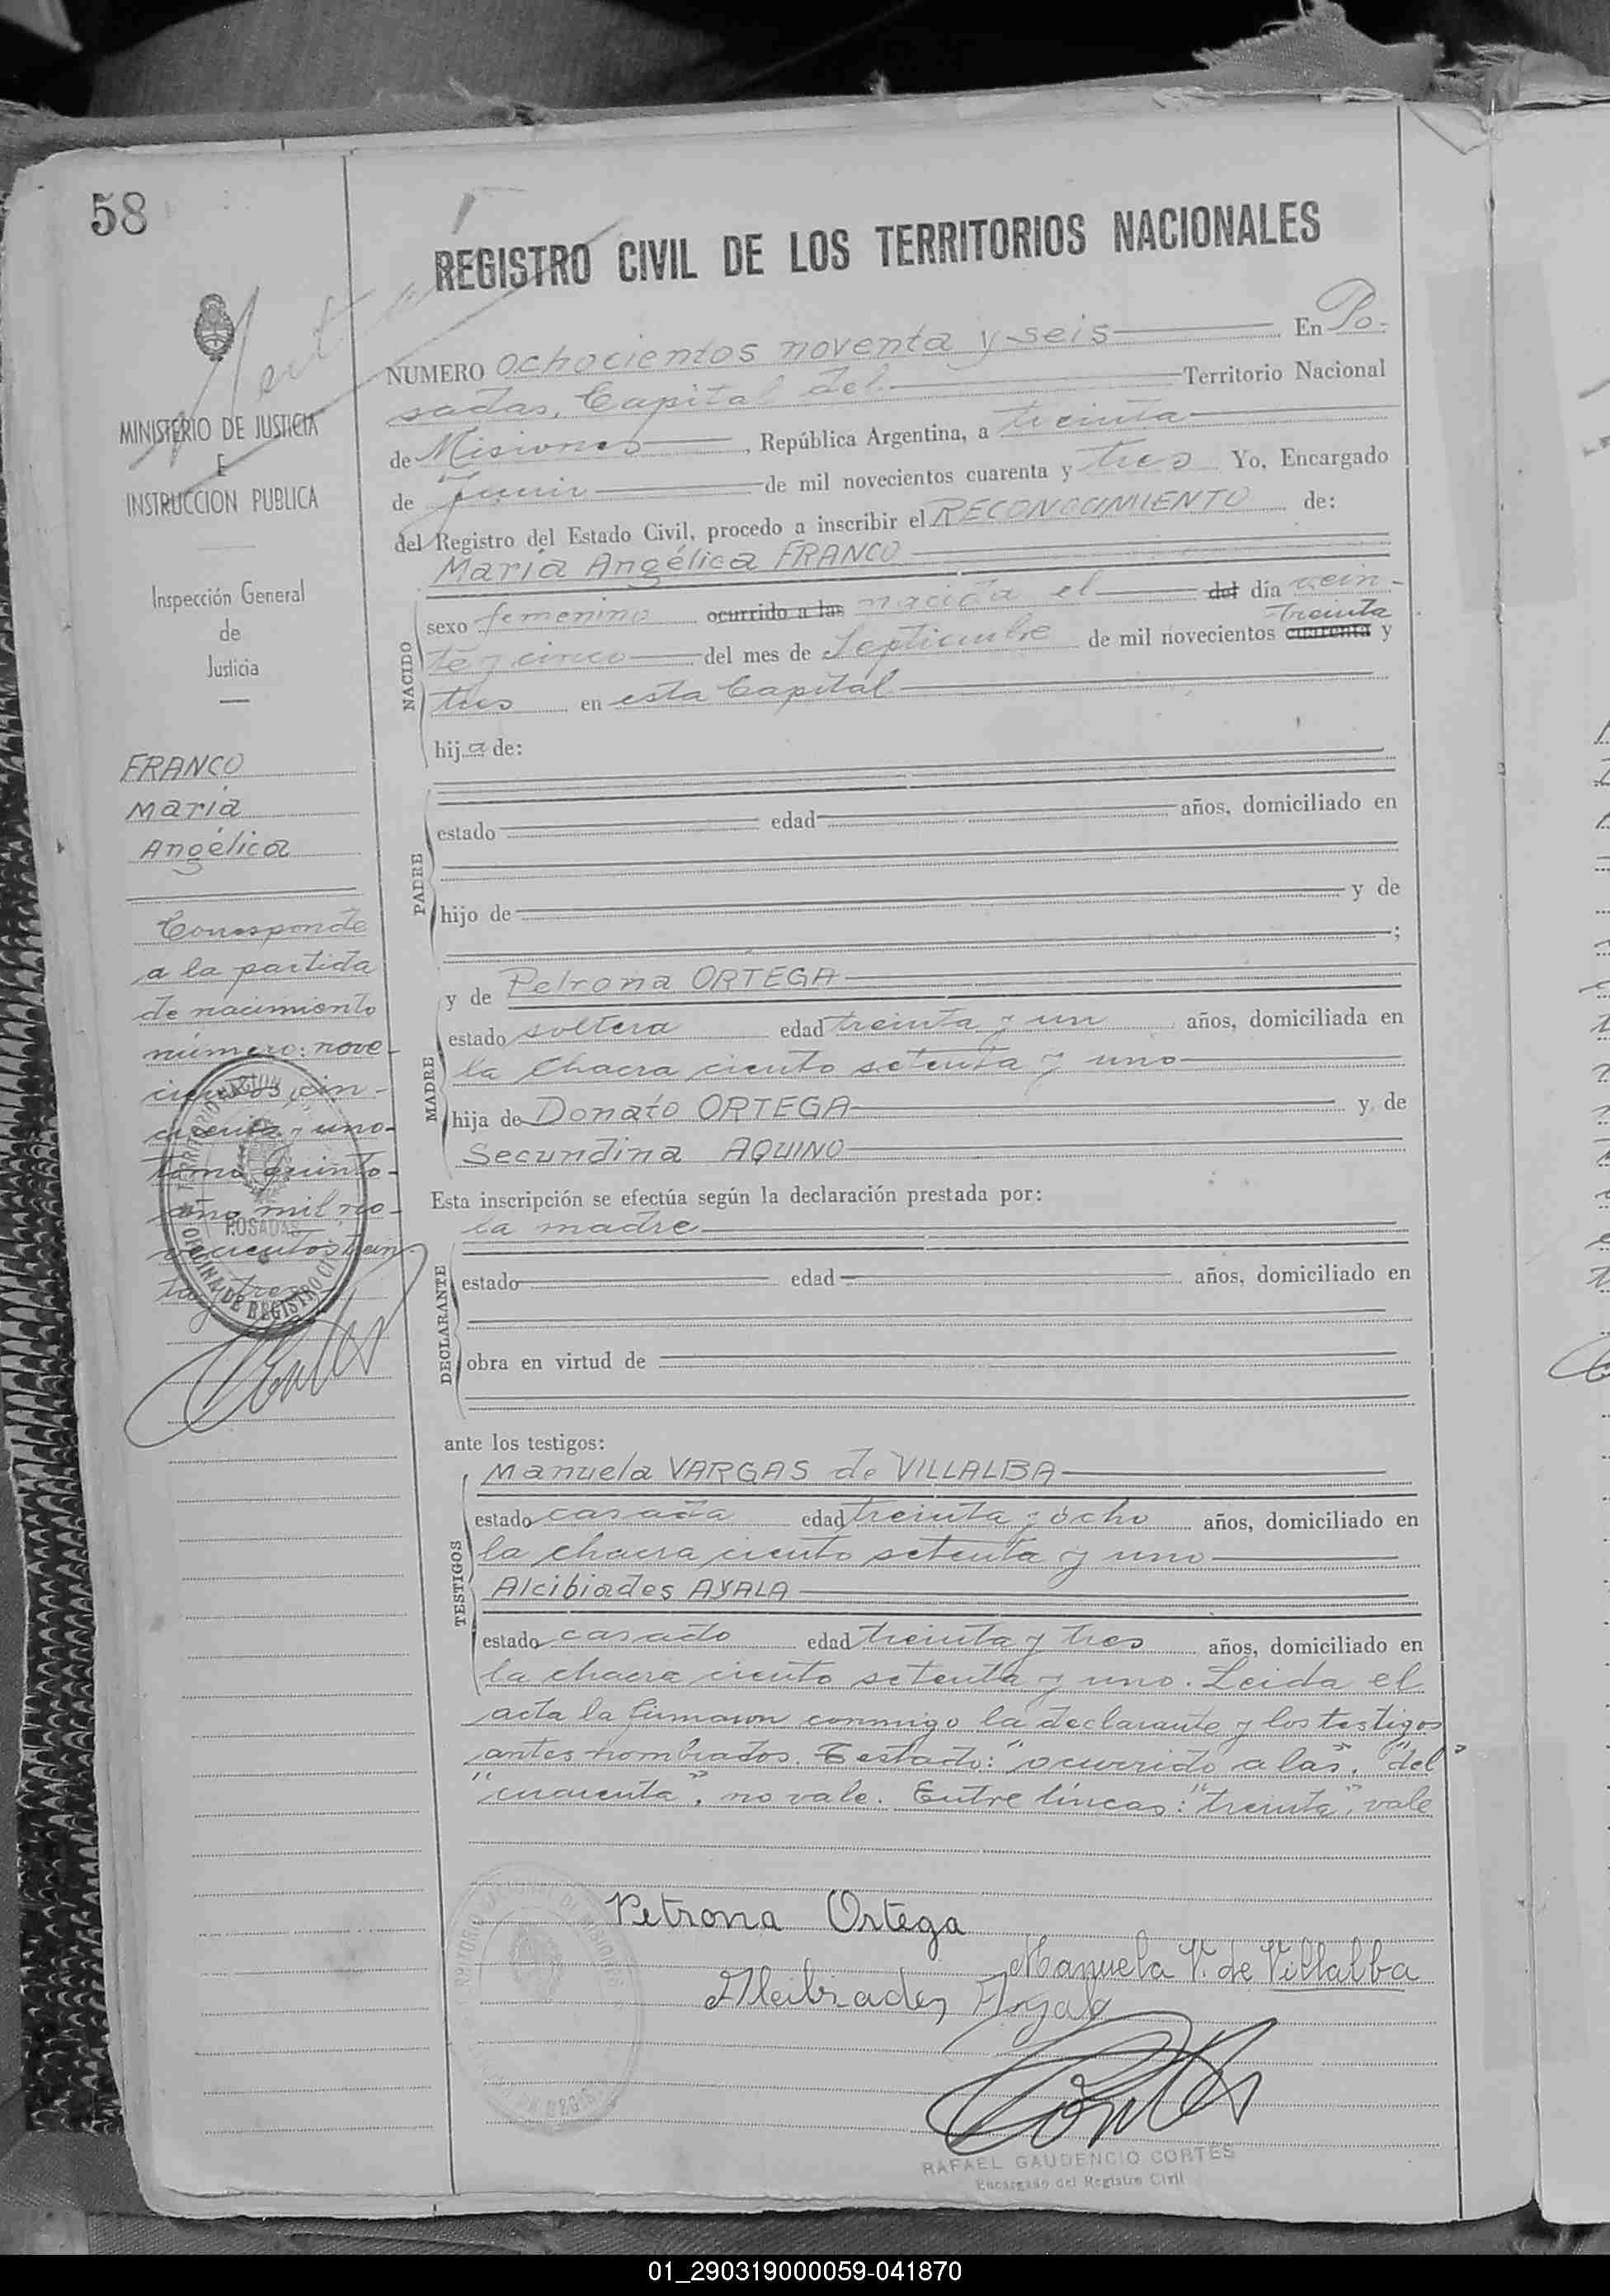 58
REGISTRO CIVIL DE LOS TERRITORIOS NACIONALES
NUMERO ochocientos noventa y seis En Po-
sadas, Capital del Territorio Nacional
de Misiones, República Argentina, a treinta
de Junio de mil novecientos cuarenta y tres Yo, Encargado
del Registro del Estado Civil, procedo a inscribir el RECONOCIMIENTO de:
María Angélica FRANCO
NACIDO
sexo femenino ocurrido a las nacida el del día vein-
treinta
te y cinco del mes de Septiembre de mil novecientos cuarenta y
tres en esta Capital
hija de:
PADRE
estado edad años, domiciliado en
hijo de y de
;
MADRE
y de Petrona ORTEGA
estado soltera edad treinta y un años, domiciliada en
la Chacra ciento setenta y uno
hija de Donato ORTEGA y de
Secundina AQUINO
Esta inscripción se efectúa según la declaración prestada por:
la madre
DECLARANTE
estado edad años, domiciliado en
obra en virtud de
ante los testigos:
TESTIGOS
Manuela VARGAS de VILLALBA
estado casada edad treinta y ocho años, domiciliado en
la chacra ciento setenta y uno
Alcibiades AYALA
estado casado edad treinta y tres años, domiciliado en
la chacra ciento setenta y uno. Leida el
acta la firmaron conmigo la declarante y los testigos
antes nombrados. Testado: "ocurrido a las", "del"
"cuarenta", no vale. Entre líneas: "treinta", vale
Petrona Ortega
Manuela V. de Villalba
Alcibiades Ayala
RAFAEL GAUDENCIO CORTÉS
Encargado del Registro Civil
MINISTERIO DE JUSTICIA
E
INSTRUCCION PUBLICA
Inspección General
de
Justicia
FRANCO
María
Angélica
Corresponde
a la partida
de nacimiento
número: nove-
cientos cin-
cuenta y uno-
tomo quinto-
año mil no-
vecientos trein
ta y tres
POSADAS
OFICINA DE REGISTRO CIVIL
01_290319000059-041870